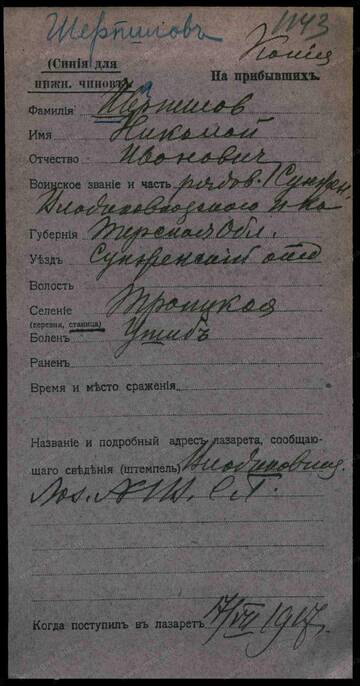 Шерпиловъ
1143
Копия
(Синія для нижн. чиновъ)
На прибывшихъ.
Фамилія Шерпилов
Имя Николай
Отчество Иванович
Воинское званіе и часть рядов. 1 Сунжен.
Владикавказского п-ка
Губернія Терская Обл.
Уѣздъ Сунженский отд
Волость
Селеніе Троицкая
(деревня, станица)
Боленъ Ушибъ
Раненъ
Время и мѣсто сраженія
Названіе и подробный адресъ лазарета, сообщаю-
щаго свѣдѣнія (штемпель) Владикавказ.
Лаз. С.Г.
Когда поступил въ лазаретъ 17/VII 1917